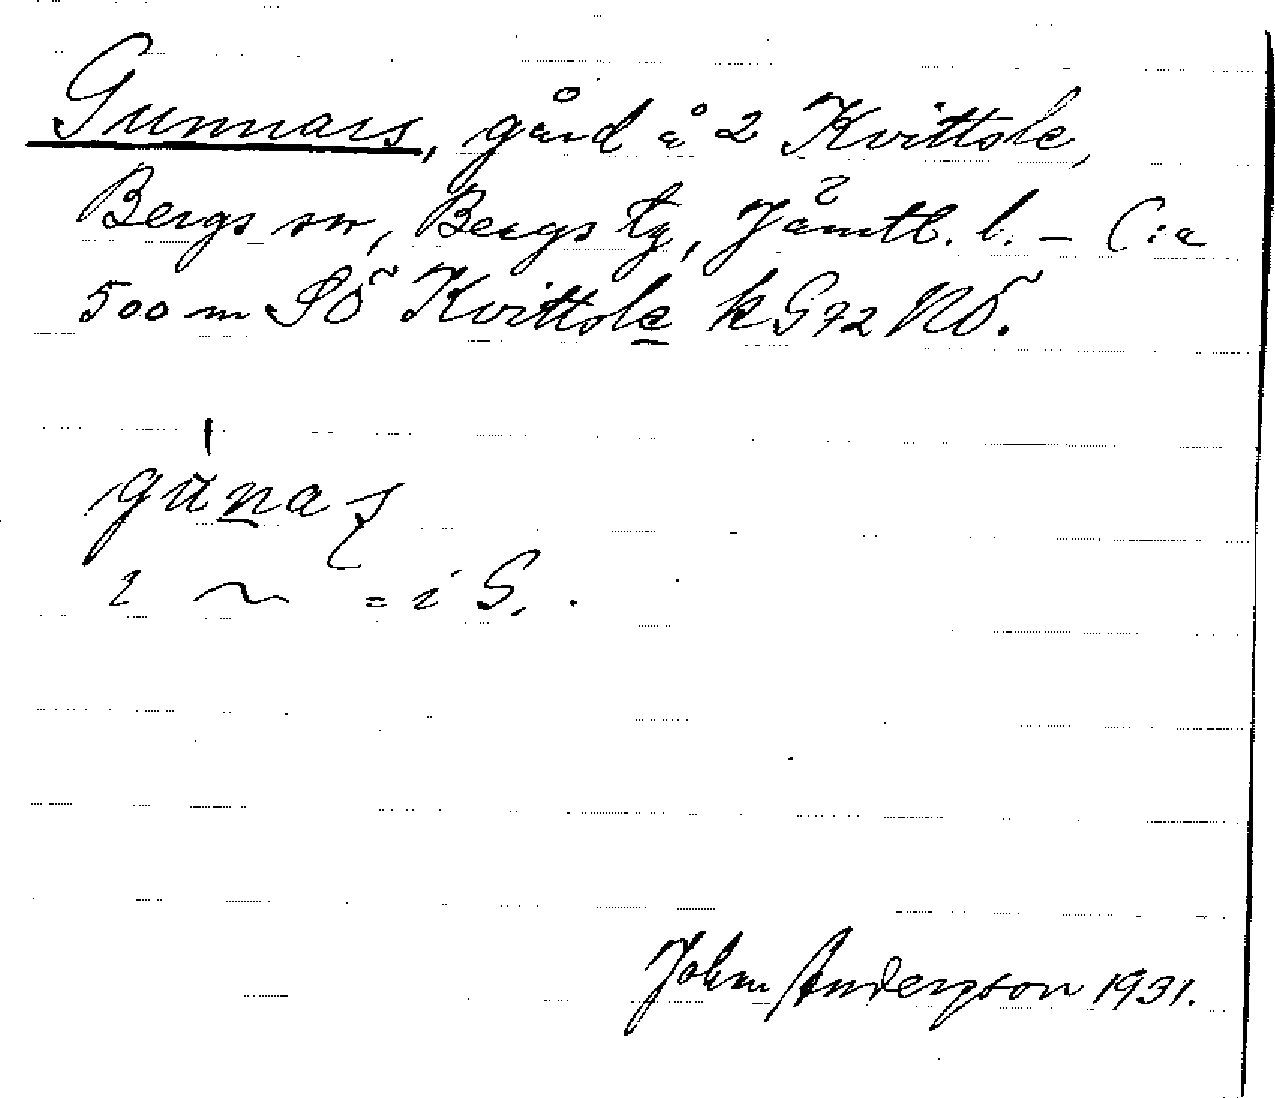 Gunnars, gård å 2 Kvittsle,
Bergs sn, Bergs tg, Jämtl. l. – C:a
500 m SÖ Kvittsle k G 72 NÖ.
i ~ = i G.
John Anderson 1931.